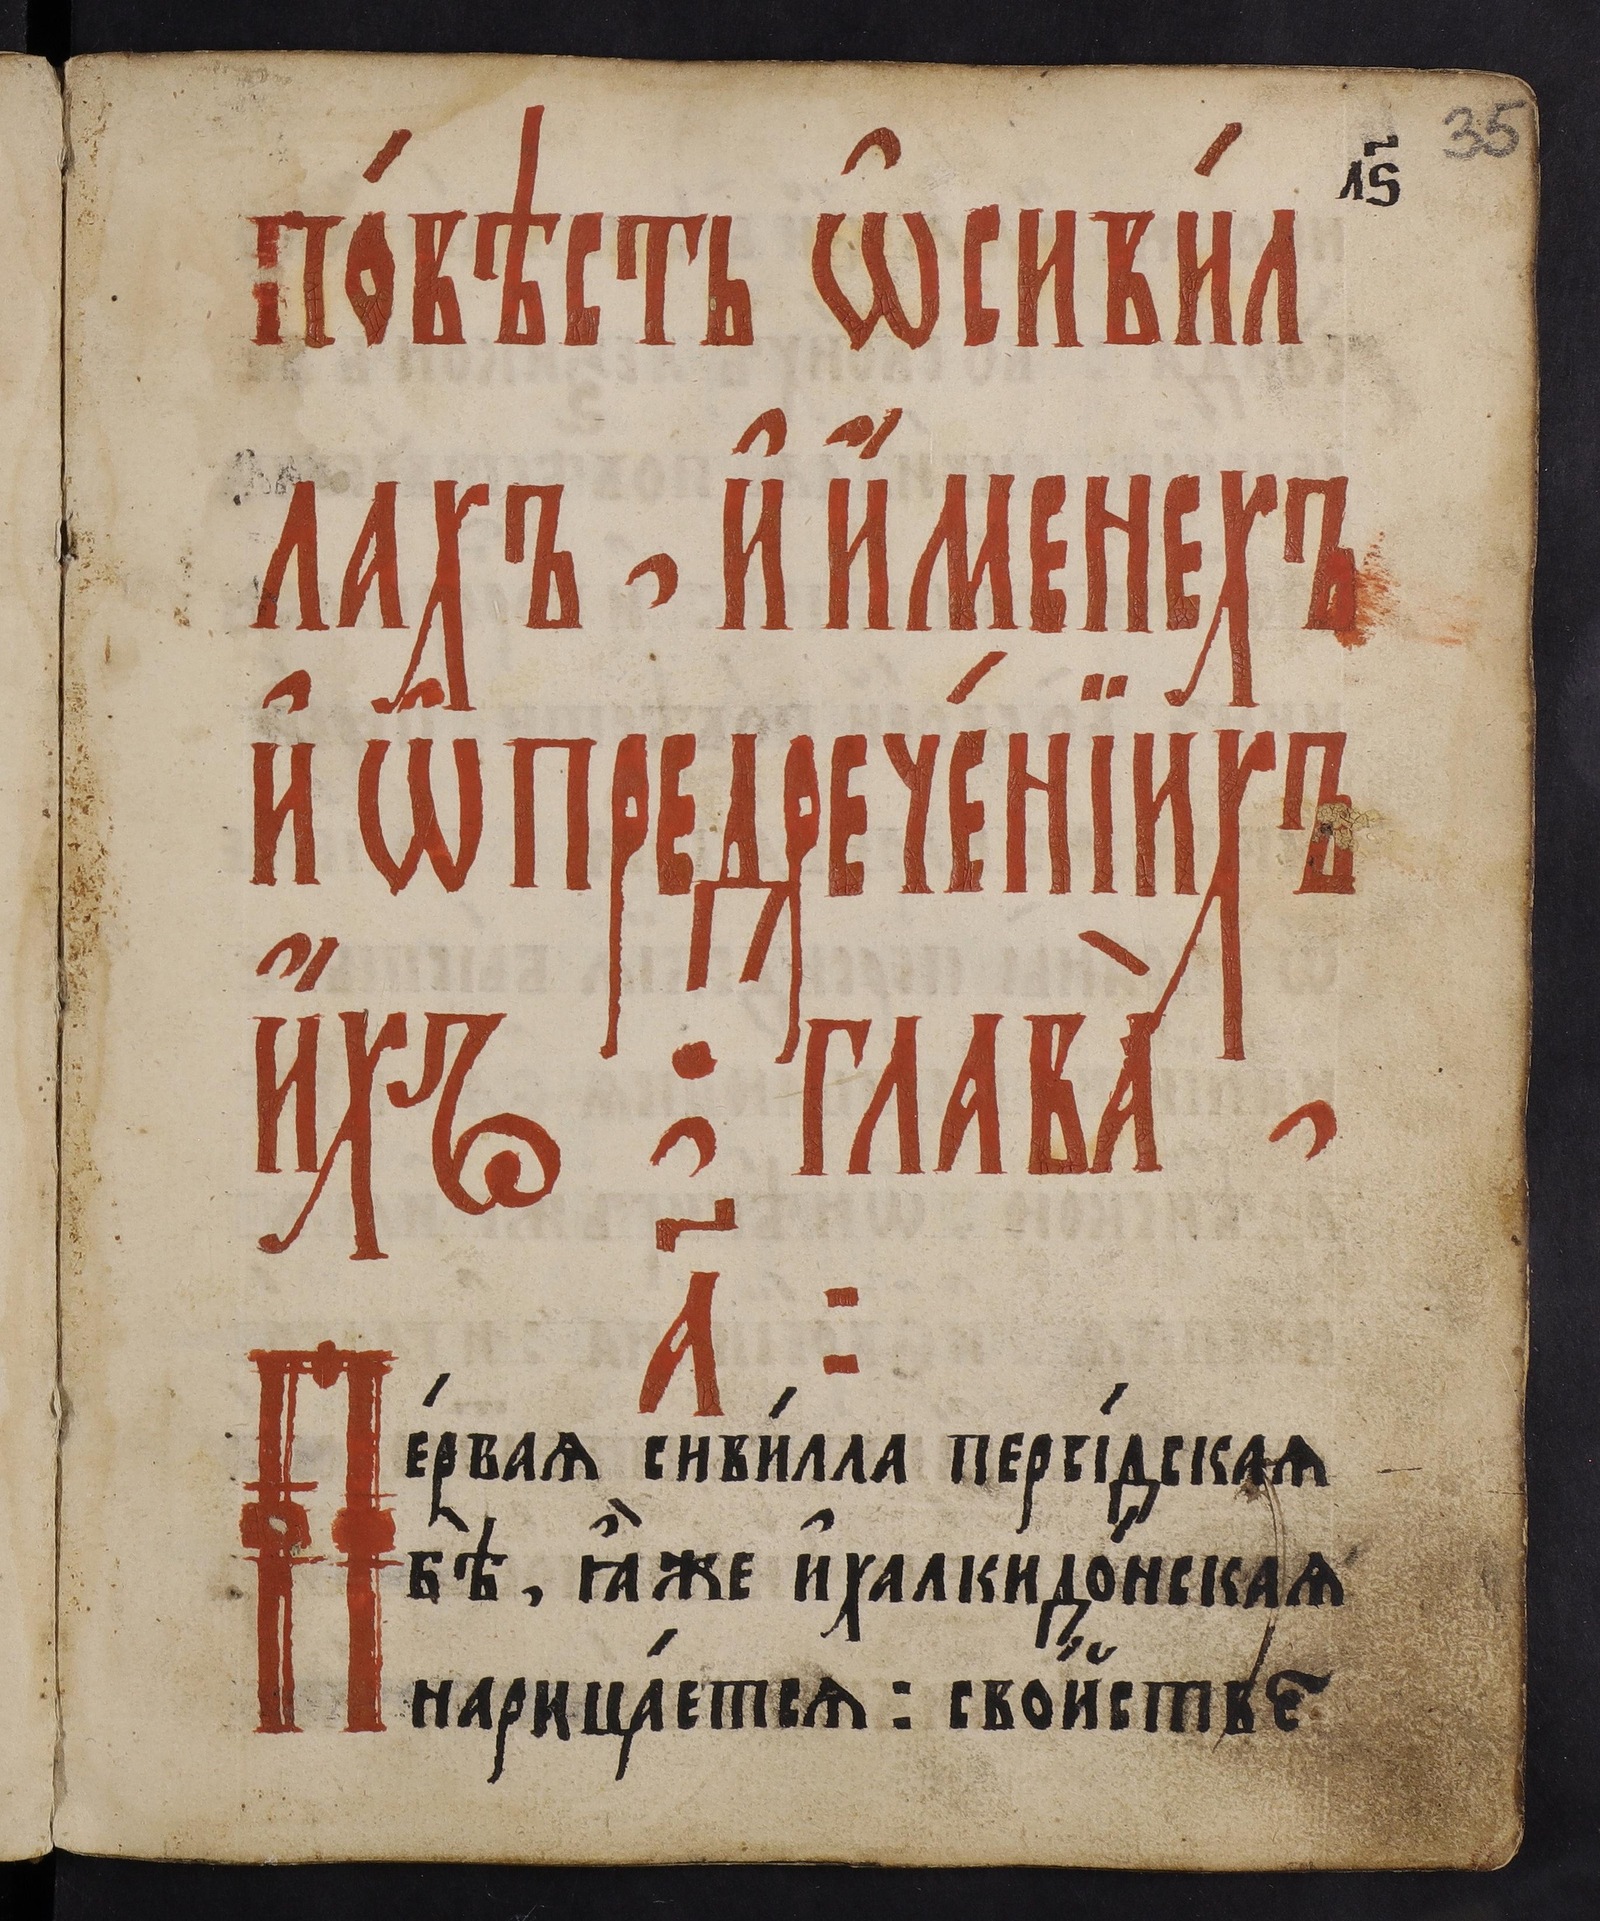 35
л҃ѕ
По́вѣсть ѡ҆сиви́л
лахъ , и҆ и҆́менехъ
и҆ ѡ҆предрече́нїихъ
и҆́хъ : глава̀ ,
а҃ :
Пе́рвая сиви́лла персі́дская
бѣ̀ , ꙗ҆́же и҆халкидо́нская
нарица́ется : сво́йстве